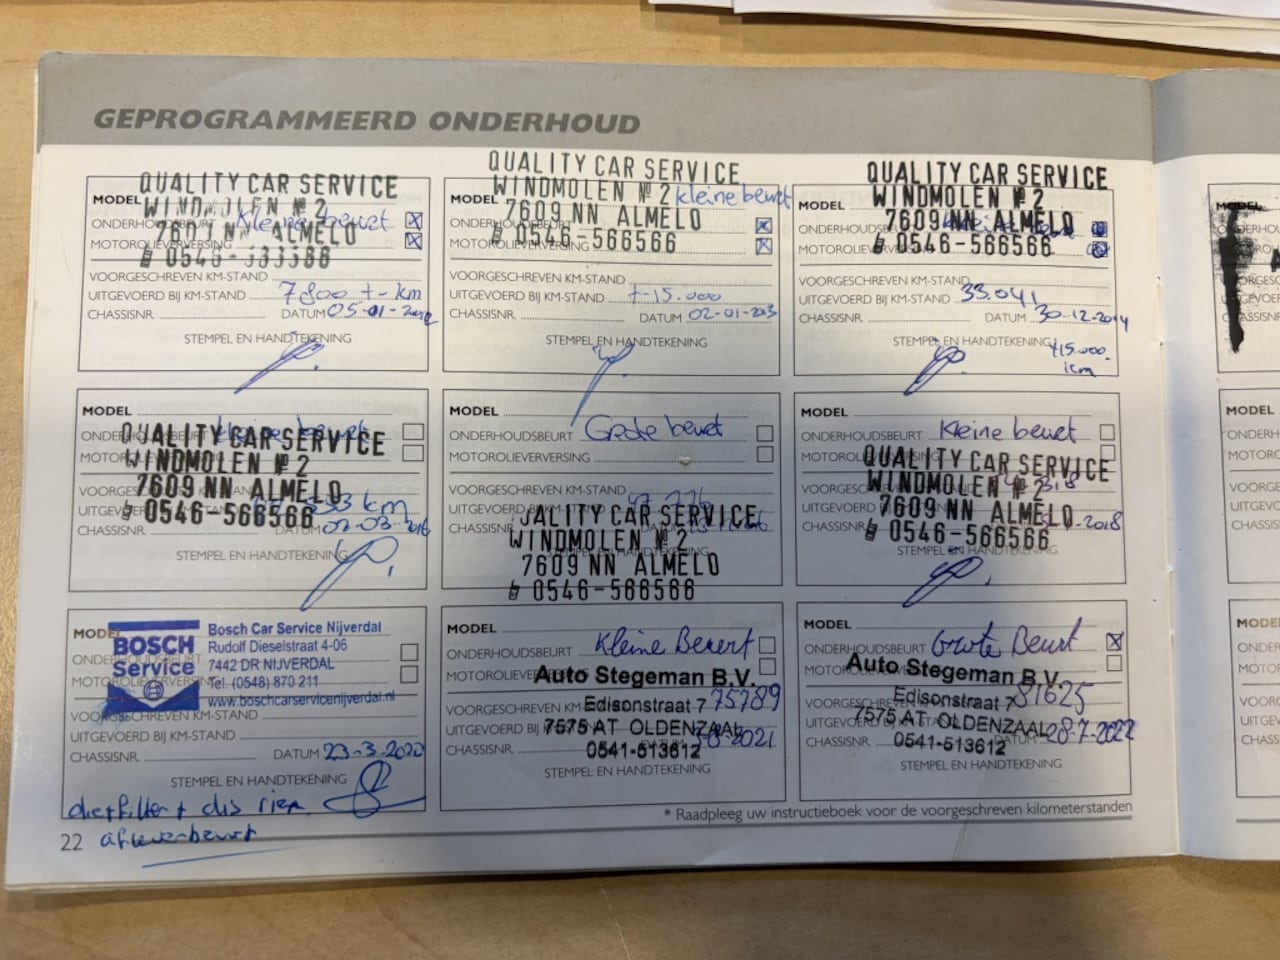 GEPROGRAMMEERD ONDERHOUD
QUALITY CAR SERVICE
WINDMOLEN № 2
7601 NN ALMELO
0546-
MODEL
ONDERHOUDSBEURT Kleine beurt
MOTOROLIEVERVERSING
VOORGESCHREVEN KM-STAND
UITGEVOERD BIJ KM-STAND 7800 +- km
CHASSISNR. DATUM 05-01-
STEMPEL EN HANDTEKENING
QUALITY CAR SERVICE
WINDMOLEN № 2 kleine beurt
7609 NN ALMELO
0546-566566
MODEL
ONDERHOUDSBEURT
MOTOROLIEVERVERSING
VOORGESCHREVEN KM-STAND
UITGEVOERD BIJ KM-STAND +-15.000
CHASSISNR. DATUM 02-01-2013
STEMPEL EN HANDTEKENING
QUALITY CAR SERVICE
WINDMOLEN № 2
7609 NN ALMELO
0546-566566
MODEL
ONDERHOUDSBEURT
MOTOROLIEVERVERSING
VOORGESCHREVEN KM-STAND
UITGEVOERD BIJ KM-STAND 33.041
CHASSISNR. DATUM 30-12-2014
STEMPEL EN HANDTEKENING
+15.000
km
MODEL
ONDERHOUDSBEURT kleine beurt
QUALITY CAR SERVICE
MOTOROLIEVERVERSING
WINDMOLEN № 2
7609 NN ALMELO
VOORGESCHREVEN KM-STAND
UITGEVOERD BIJ KM-STAND km
0546-566566
CHASSISNR. DATUM 02-03-2016
STEMPEL EN HANDTEKENING
MODEL
ONDERHOUDSBEURT Grote beurt
MOTOROLIEVERVERSING
VOORGESCHREVEN KM-STAND
UITGEVOERD BIJ KM-STAND
CHASSISNR.
JALITY CAR SERVICE
WINDMOLEN № 2
STEMPEL EN HANDTEKENING
7609 NN ALMELO
0546-566566
MODEL
ONDERHOUDSBEURT Kleine beurt
MOTOROLIEVERVERSING
QUALITY CAR SERVICE
VOORGESCHREVEN KM-STAND
WINDMOLEN № 2
UITGEVOERD
7609 NN ALMELO
CHASSISNR. -2018
0546-566566
STEMPEL EN HANDTEKENING
MODEL
BOSCH
Service
Bosch Car Service Nijverdal
Rudolf Dieselstraat 4-06
7442 DR NIJVERDAL
Tel. (0548) 870 211
www.boschcarservicenijverdal.nl
ONDERHOUDSBEURT
MOTOROLIEVERVERSING
VOORGESCHREVEN KM-STAND
UITGEVOERD BIJ KM-STAND
CHASSISNR. DATUM 23-3-2020
STEMPEL EN HANDTEKENING
+ dis riem
afleverbeurt
MODEL
ONDERHOUDSBEURT Kleine Beurt
MOTOROLIEVERVERSING
Auto Stegeman B.V.
VOORGESCHREVEN KM-STAND 75789
Edisonstraat 7
UITGEVOERD BIJ
7575 AT OLDENZAAL
CHASSISNR. 2021
0541-513612
STEMPEL EN HANDTEKENING
MODEL
ONDERHOUDSBEURT Grote Beurt
MOTOROLIEVERVERSING
Auto Stegeman B.V.
VOORGESCHREVEN 81625
Edisonstraat 7
UITGEVOERD
7575 AT OLDENZAAL 28-7-2022
CHASSISNR. DATUM
0541-513612
STEMPEL EN HANDTEKENING
* Raadpleeg uw instructieboek voor de voorgeschreven kilometerstanden
22